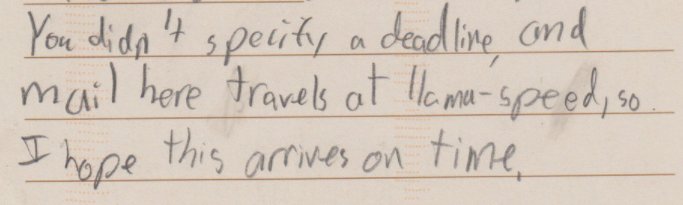 You didn't specify a deadline, and
mail here travels at llama-speed, so
I hope this arrives on time.